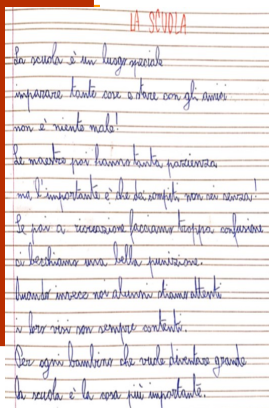 LA SCUOLA
La scuola è un luogo speciale
imparare tante cose e stare con gli amici
non è niente male!
Le maestre poi hanno tanta pazienza
ma l'importante è che dei compiti non sei senza!
Se poi a ricreazione facciamo troppa confusione
ci becchiamo una bella punizione.
Quando invece noi alunni stiamo attenti
i loro visi son sempre contenti.
Per ogni bambino che vuole diventare grande
la scuola è la cosa più importante.